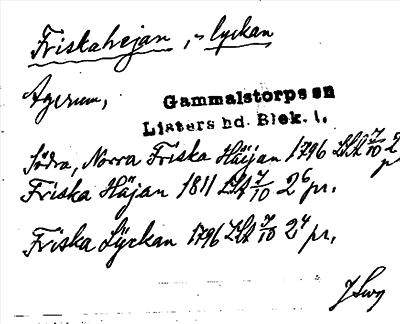 Friskahejan, "- lyckan
Agerum,
Gammalstorps sn
Listers hd. Blek. l.
Södra, Norra Friska Häjan 1796 LSA 7/10 2
Friska Häjan 1811 LSA 7/10 2⁶ pr.
Friska Lyckan 1796 LSA 7/10 2⁴ pr.